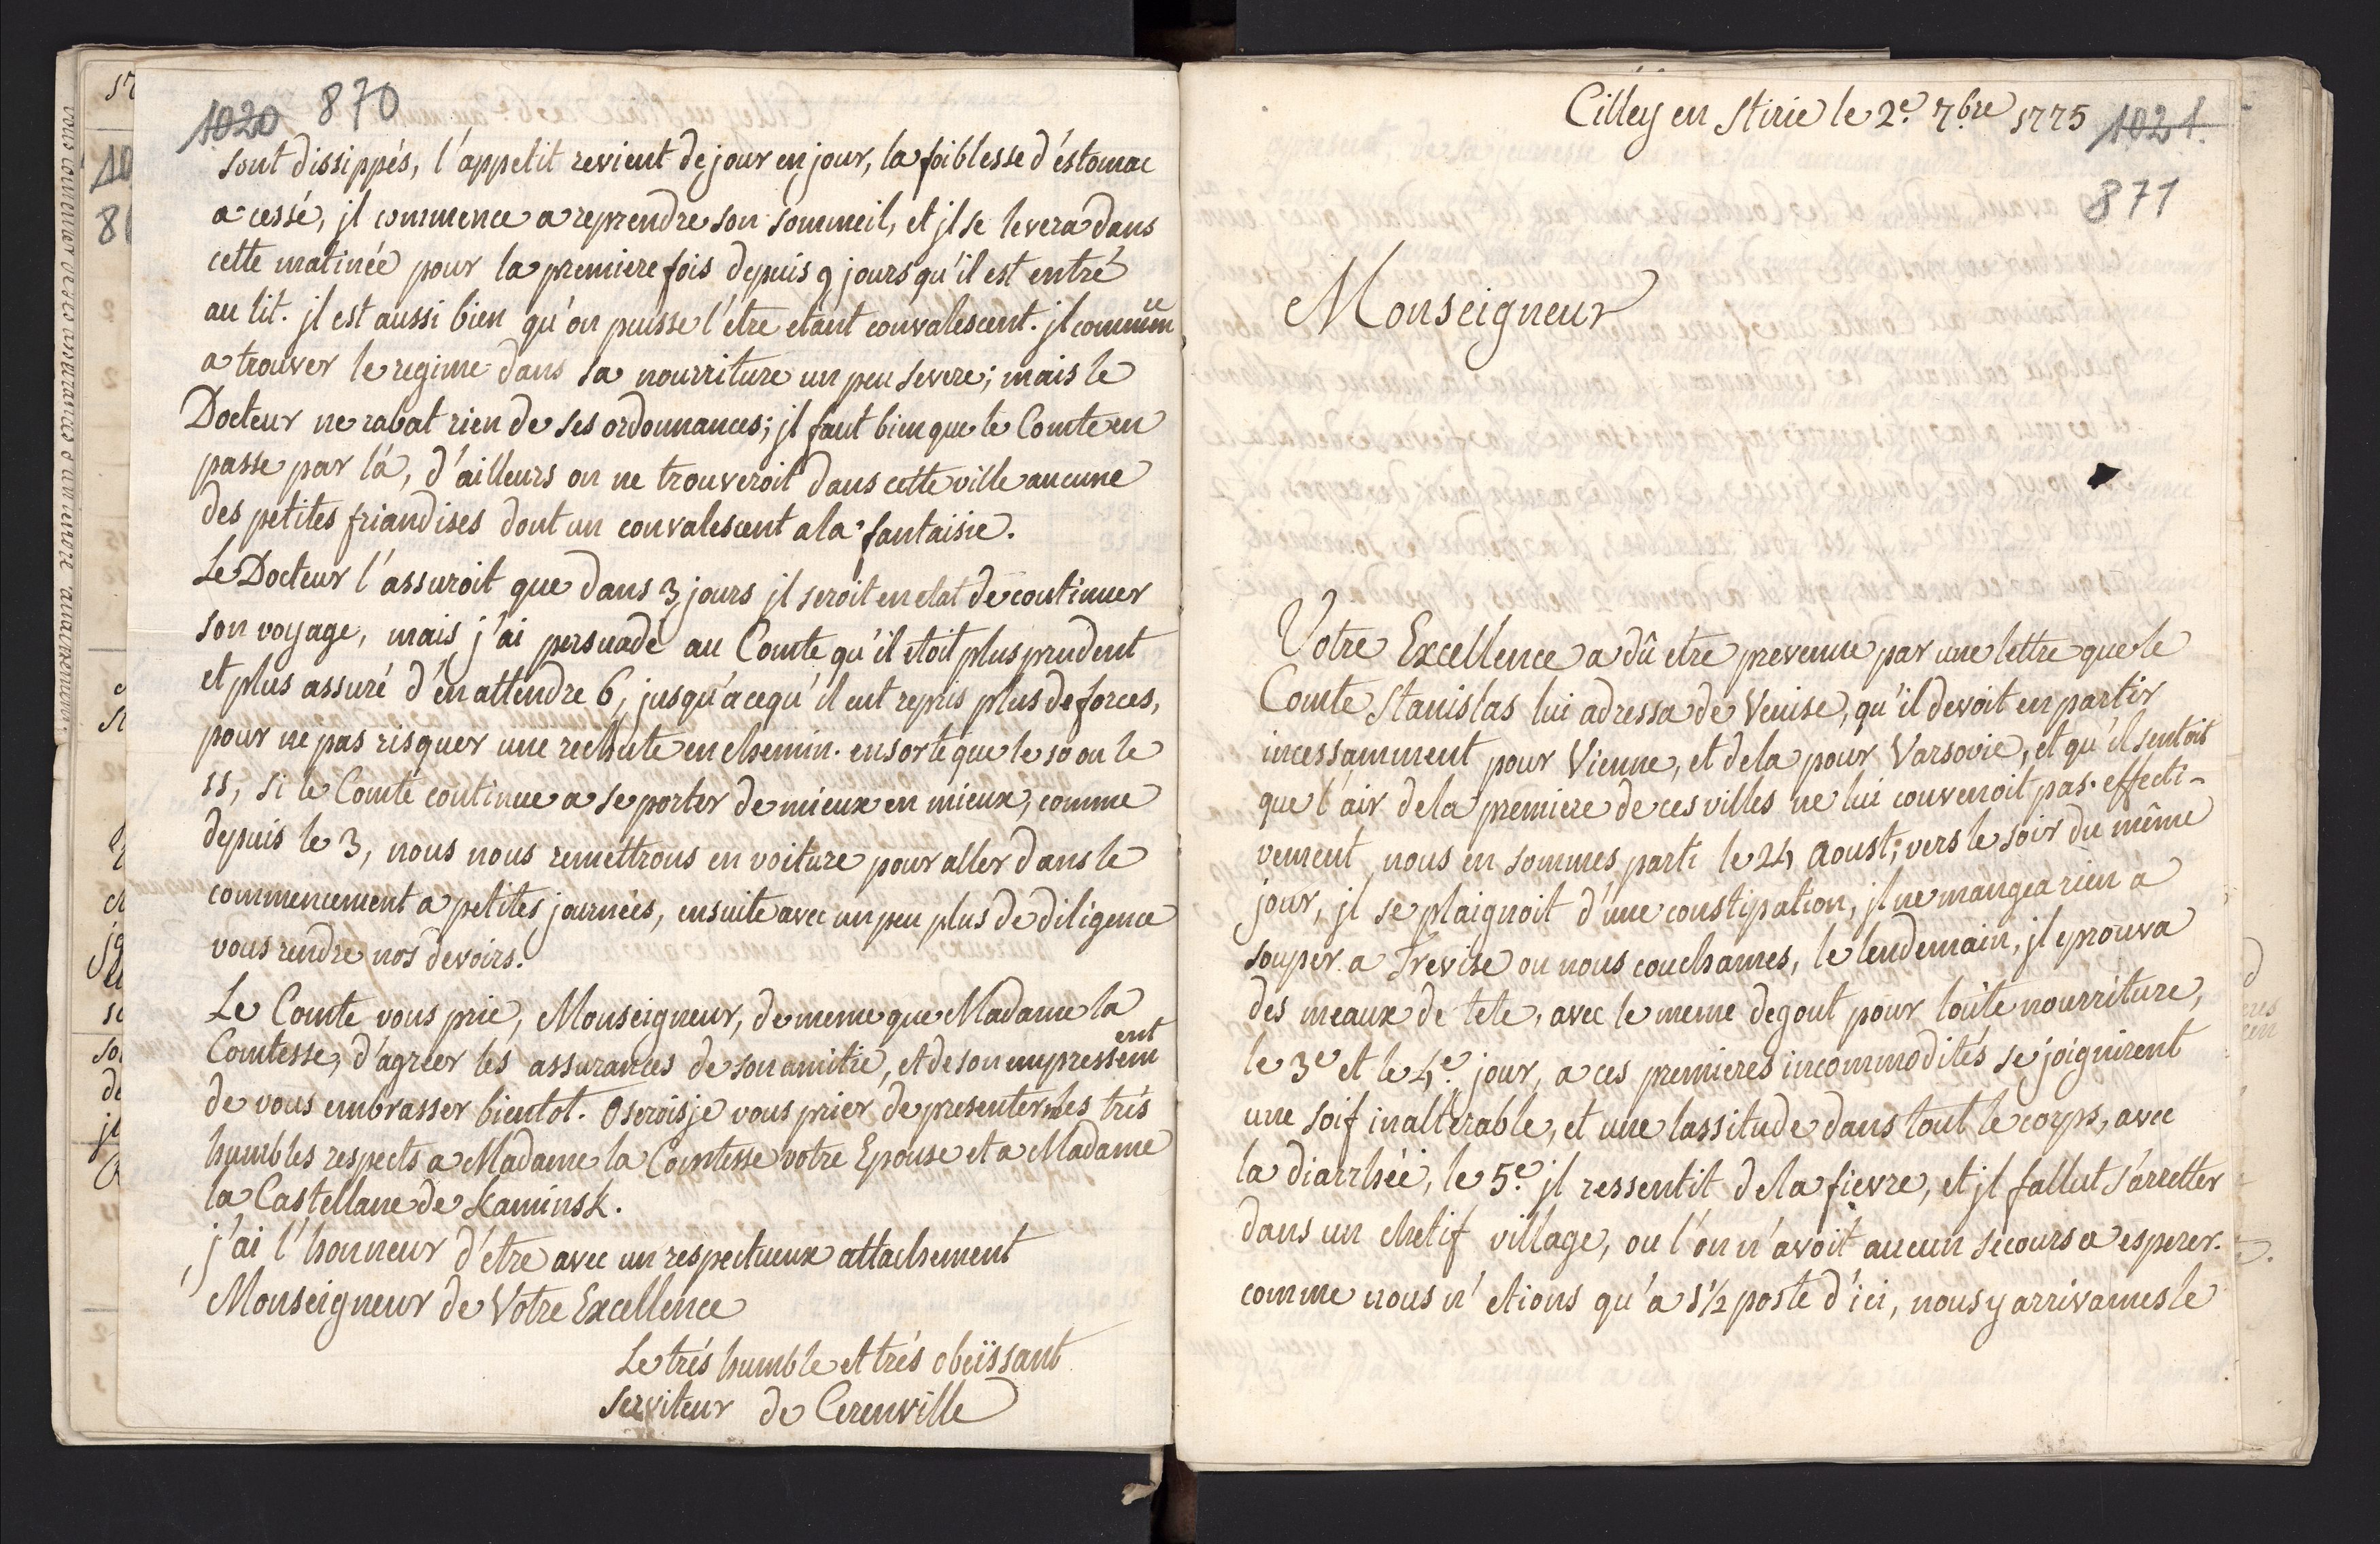 1020 870
sont dissippés, l'appetit revient de jour en jour, la foiblesse d'éstomac
a cessé, jl commence a reprendre son sommeil, et jl se levera dans
cette matinée pour la premiere fois depuis 9 jours qu'il est entré
au lit. jl est aussi bien qu'on puisse l'etre etant convalescent. jl commence
a trouver le regime dans sa nourriture un peu severe; mais le
Docteur ne rabat rien de ses ordonnances; jl faut bien que le Comte en
passe par là, d'ailleurs on ne trouveroit dans cette ville aucune
des petites friandises dont un convalescent a la fantaisie.
Le Docteur l'assuroit que dans 3 jours jl seroit en etat de continuer
son voyage, mais j'ai persuadé au Comte qu'il etoit plus prudent
et plus assuré d'en attendre 6, jusqu'a ce qu'il eut repris plus de forces,
pour ne pas risquer une rechute en chemin. ensorte que le 10 ou le
11, si le Comte continue a se porter de mieux en mieux, comme
depuis le 3, nous nous remettrons en voiture pour aller dans le
commencement a petites journées, ensuite avec un peu plus de diligence
vous rendre nos devoirs.
Le Comte vous prie, Monseigneur, de meme que Madame la
Comtesse, d'agreer les assurances de son amitie, et de son empressement
de vous embrasser bientot. Oserois je vous prier de presenter mes trés
humbles respects a Madame la Comtesse votre Epouse et a Madame
la Castellane de Kaminsk.
j'ai l'honneur d'etre avec un respectueux attachement
Monseigneur de Votre Excellence
Le trés humble et trés obeïssant
serviteur de Cerenville
Cilley en Stirie le 2e. 7bre 1775 1021.
871
Monseigneur
Votre Excellence a dû etre prevenue par une lettre que le
Comte Stanislas lui adressa de Venise, qu'il devoit en partir
incessamment pour Vienne, et de la pour Varsovie, et qu'il sentoit
que l'air de la premiere de ces villes ne lui convenoit pas. effecti-
vement nous en sommes parti le 24 Aoust; vers le soir du même
jour, jl se plaignoit d'une constipation, jl ne mangea rien à
souper a Trevise ou nous couchames, le lendemain, jl eprouva
des meaux de tete, avec le meme degout pour toute nourriture,
le 3e et le 4e. jour, a ces premieres incommodités se joignirent
une soif inalterable, et une lassitude dans tout le corps, avec
la diarrhée, le 5e. jl ressentit de la fievre, et jl fallut s'arretter
dans un chetif village, ou l'on n'avoit aucun secours a esperer.
comme nous n'etions qu'a 1½ poste d'ici, nous y arrivames le